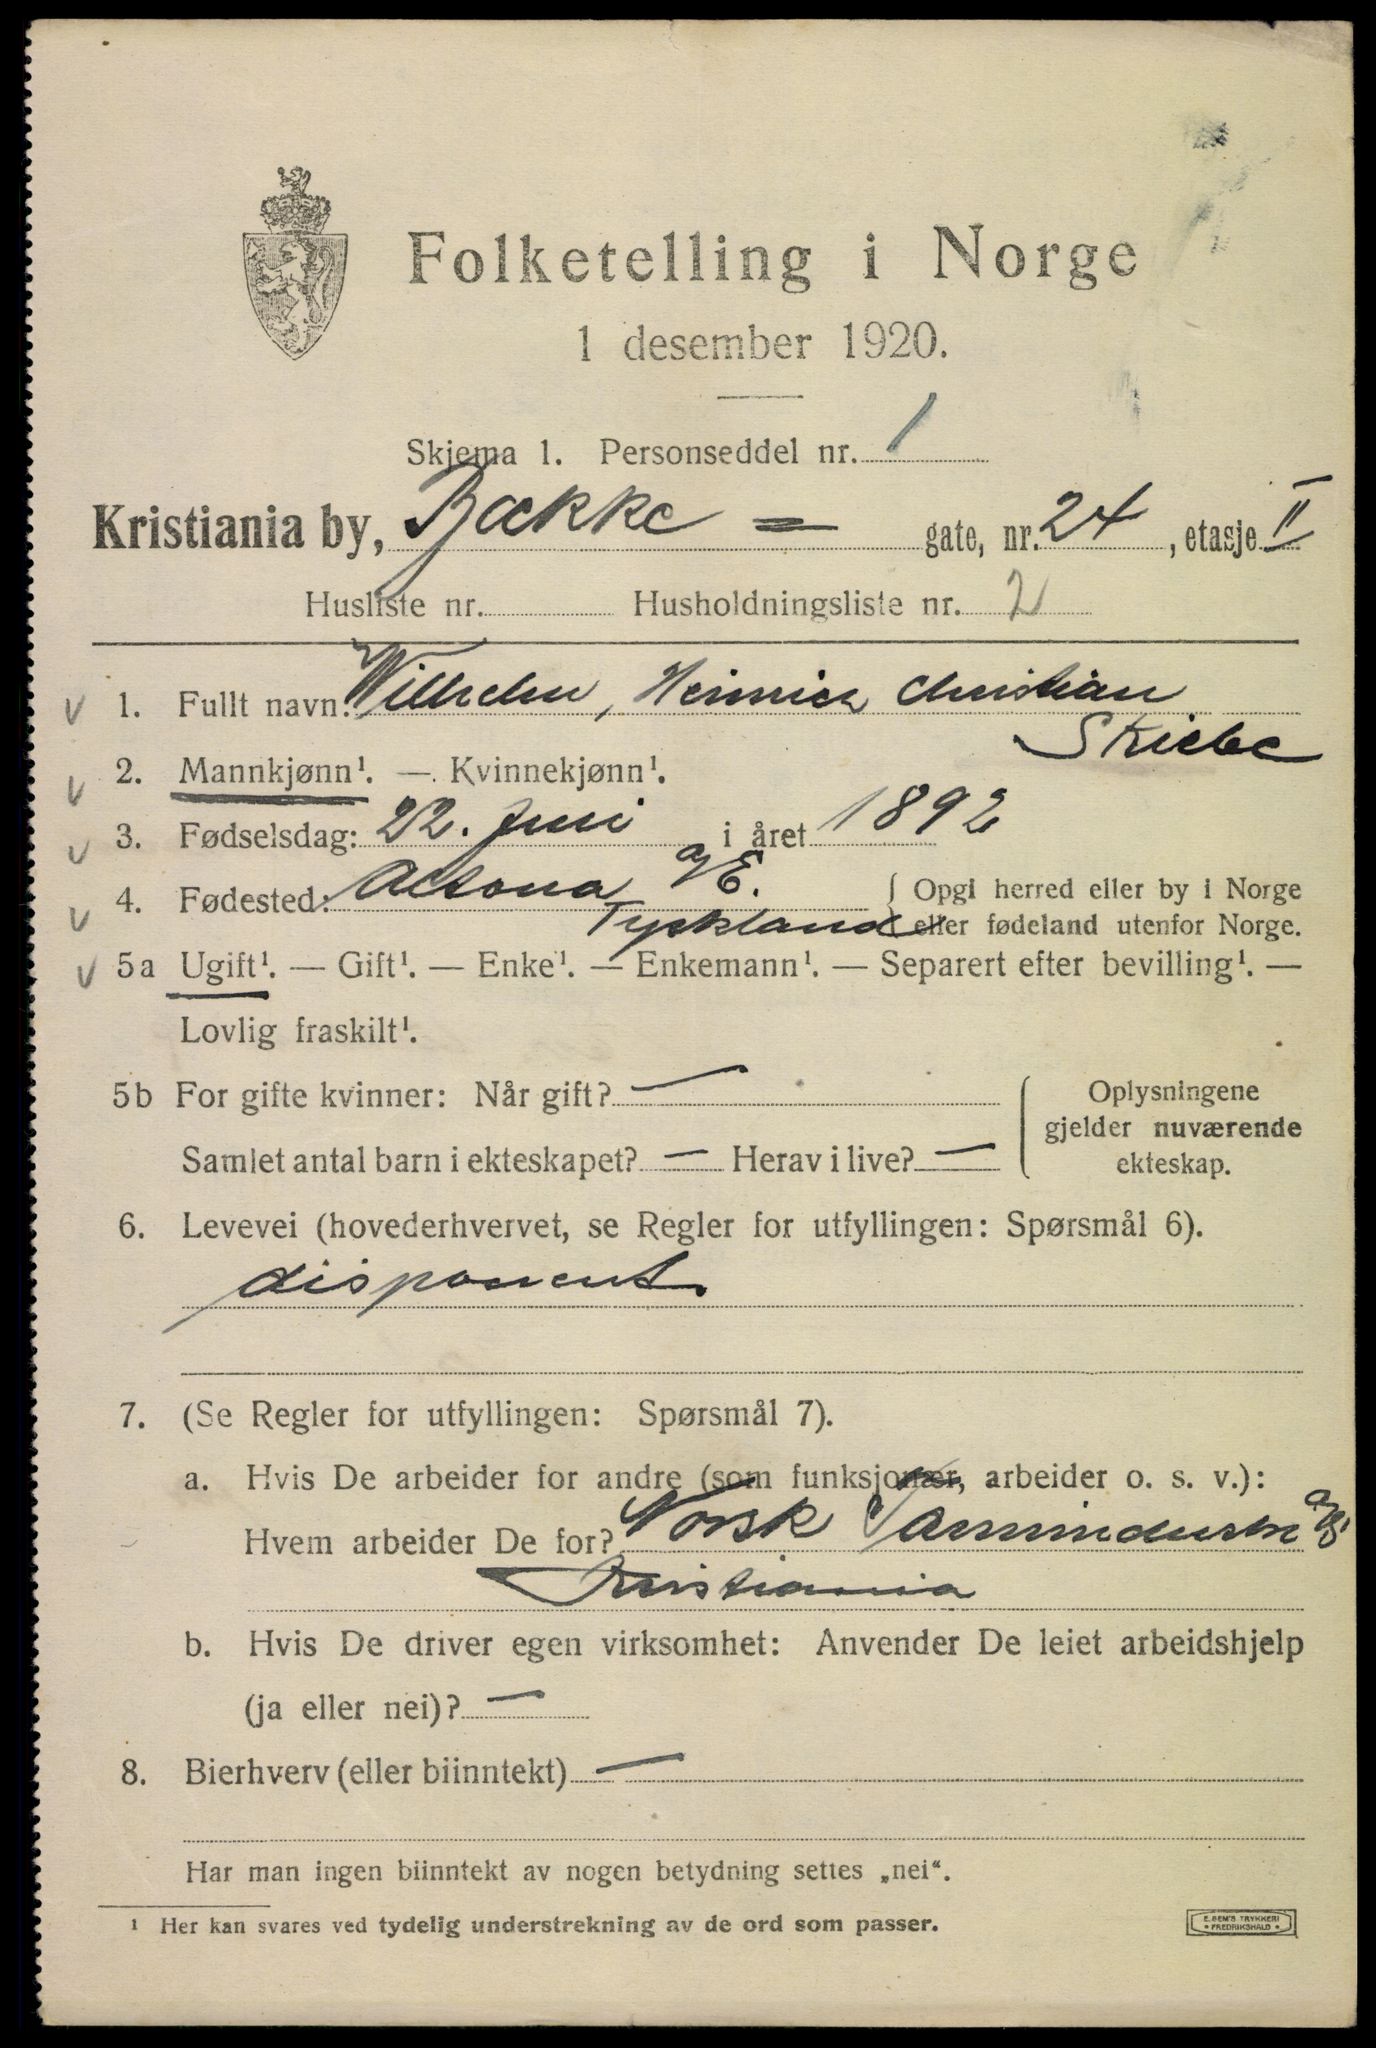 Folketelling i Norge
1 desember 1920.
Skjema 1. Personseddel nr. 1
Kristiania by, Bække = gate, nr. 24, etasje II
Husliste nr. Husholdningsliste nr. 2
1. Fullt navn: Wilhelm, Heinrich Christian
Skiebe
2. Mannkjønn¹. — Kvinnekjønn¹.
3. Fødselsdag: 22. Juni i året 1892
4. Fødested: Altona a/E. { Opgi herred eller by i Norge
Tyskland eller fødeland utenfor Norge.
5a Ugift¹. — Gift¹. — Enke¹. — Enkemann¹. — Separert efter bevilling¹. —
Lovlig fraskilt¹.
5b For gifte kvinner: Når gift? — { Oplysningene
gjelder nuværende
Samlet antal barn i ekteskapet? — Herav i live? — ekteskap.
6. Levevei (hovederhvervet, se Regler for utfyllingen: Spørsmål 6).
disponent
7. (Se Regler for utfyllingen: Spørsmål 7).
a. Hvis De arbeider for andre (som funksjonær, arbeider o. s. v.):
Hvem arbeider De for? Norsk a/s
Kristiania
b. Hvis De driver egen virksomhet: Anvender De leiet arbeidshjelp
(ja eller nei)? —
8. Bierhverv (eller biinntekt) —
Har man ingen biinntekt av nogen betydning settes „nei“.
¹ Her kan svares ved tydelig understrekning av de ord som passer.
E. SEM'S TRYKKERI
• FREDRIKSHALD •